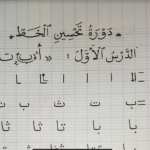 دَوْرَةُ تَحْسِينِ ٱلْخَطِّ
ٱلدَّرْسُ ٱلْأَوَّلُ : «أ، ب، ت
ا ا ا ا
ب ت ث ب ت
با تا ثا با
با تا ثا